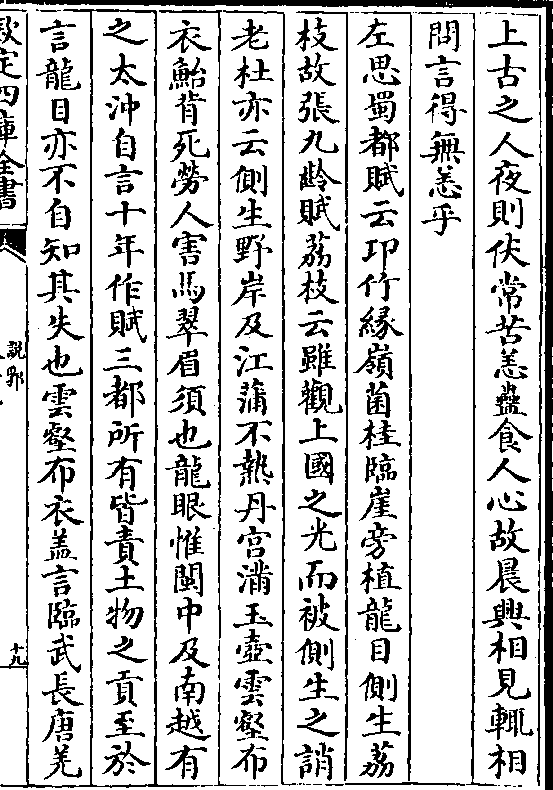 上古之人夜則伏常苦恙蠱食人心故晨興相見輒相
問言得無恙乎
左思蜀都賦云卭竹緣嶺菌桂臨崖旁植龍目側生荔
枝故張九齡賦荔枝云雖觀上國之光而被側生之誚
老杜亦云側生野岸及江蒲不熟丹宮滿玉壺雲壑布
衣鮐背死勞人害馬翠眉須也龍眼惟閩中及南越有
之太沖自言十年作賦三都所有皆責土物之貢至於
言龍目亦不自知其失也雲壑布衣盖言臨武長唐羌
欽定四庫全書
說郛
十九